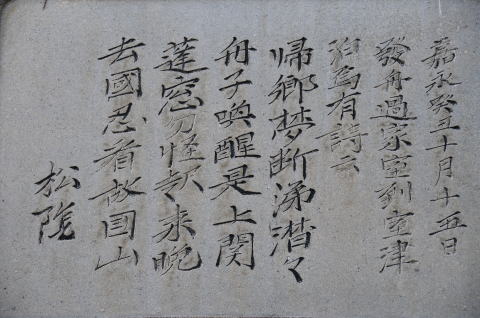 嘉永癸丑十月十五日
發舟過家室到室津
泊焉有詩云
帰郷梦断涕潸々
舟子喚醒是上関
蓬窓勿怪起来晩
去國忍看故国山
松陰